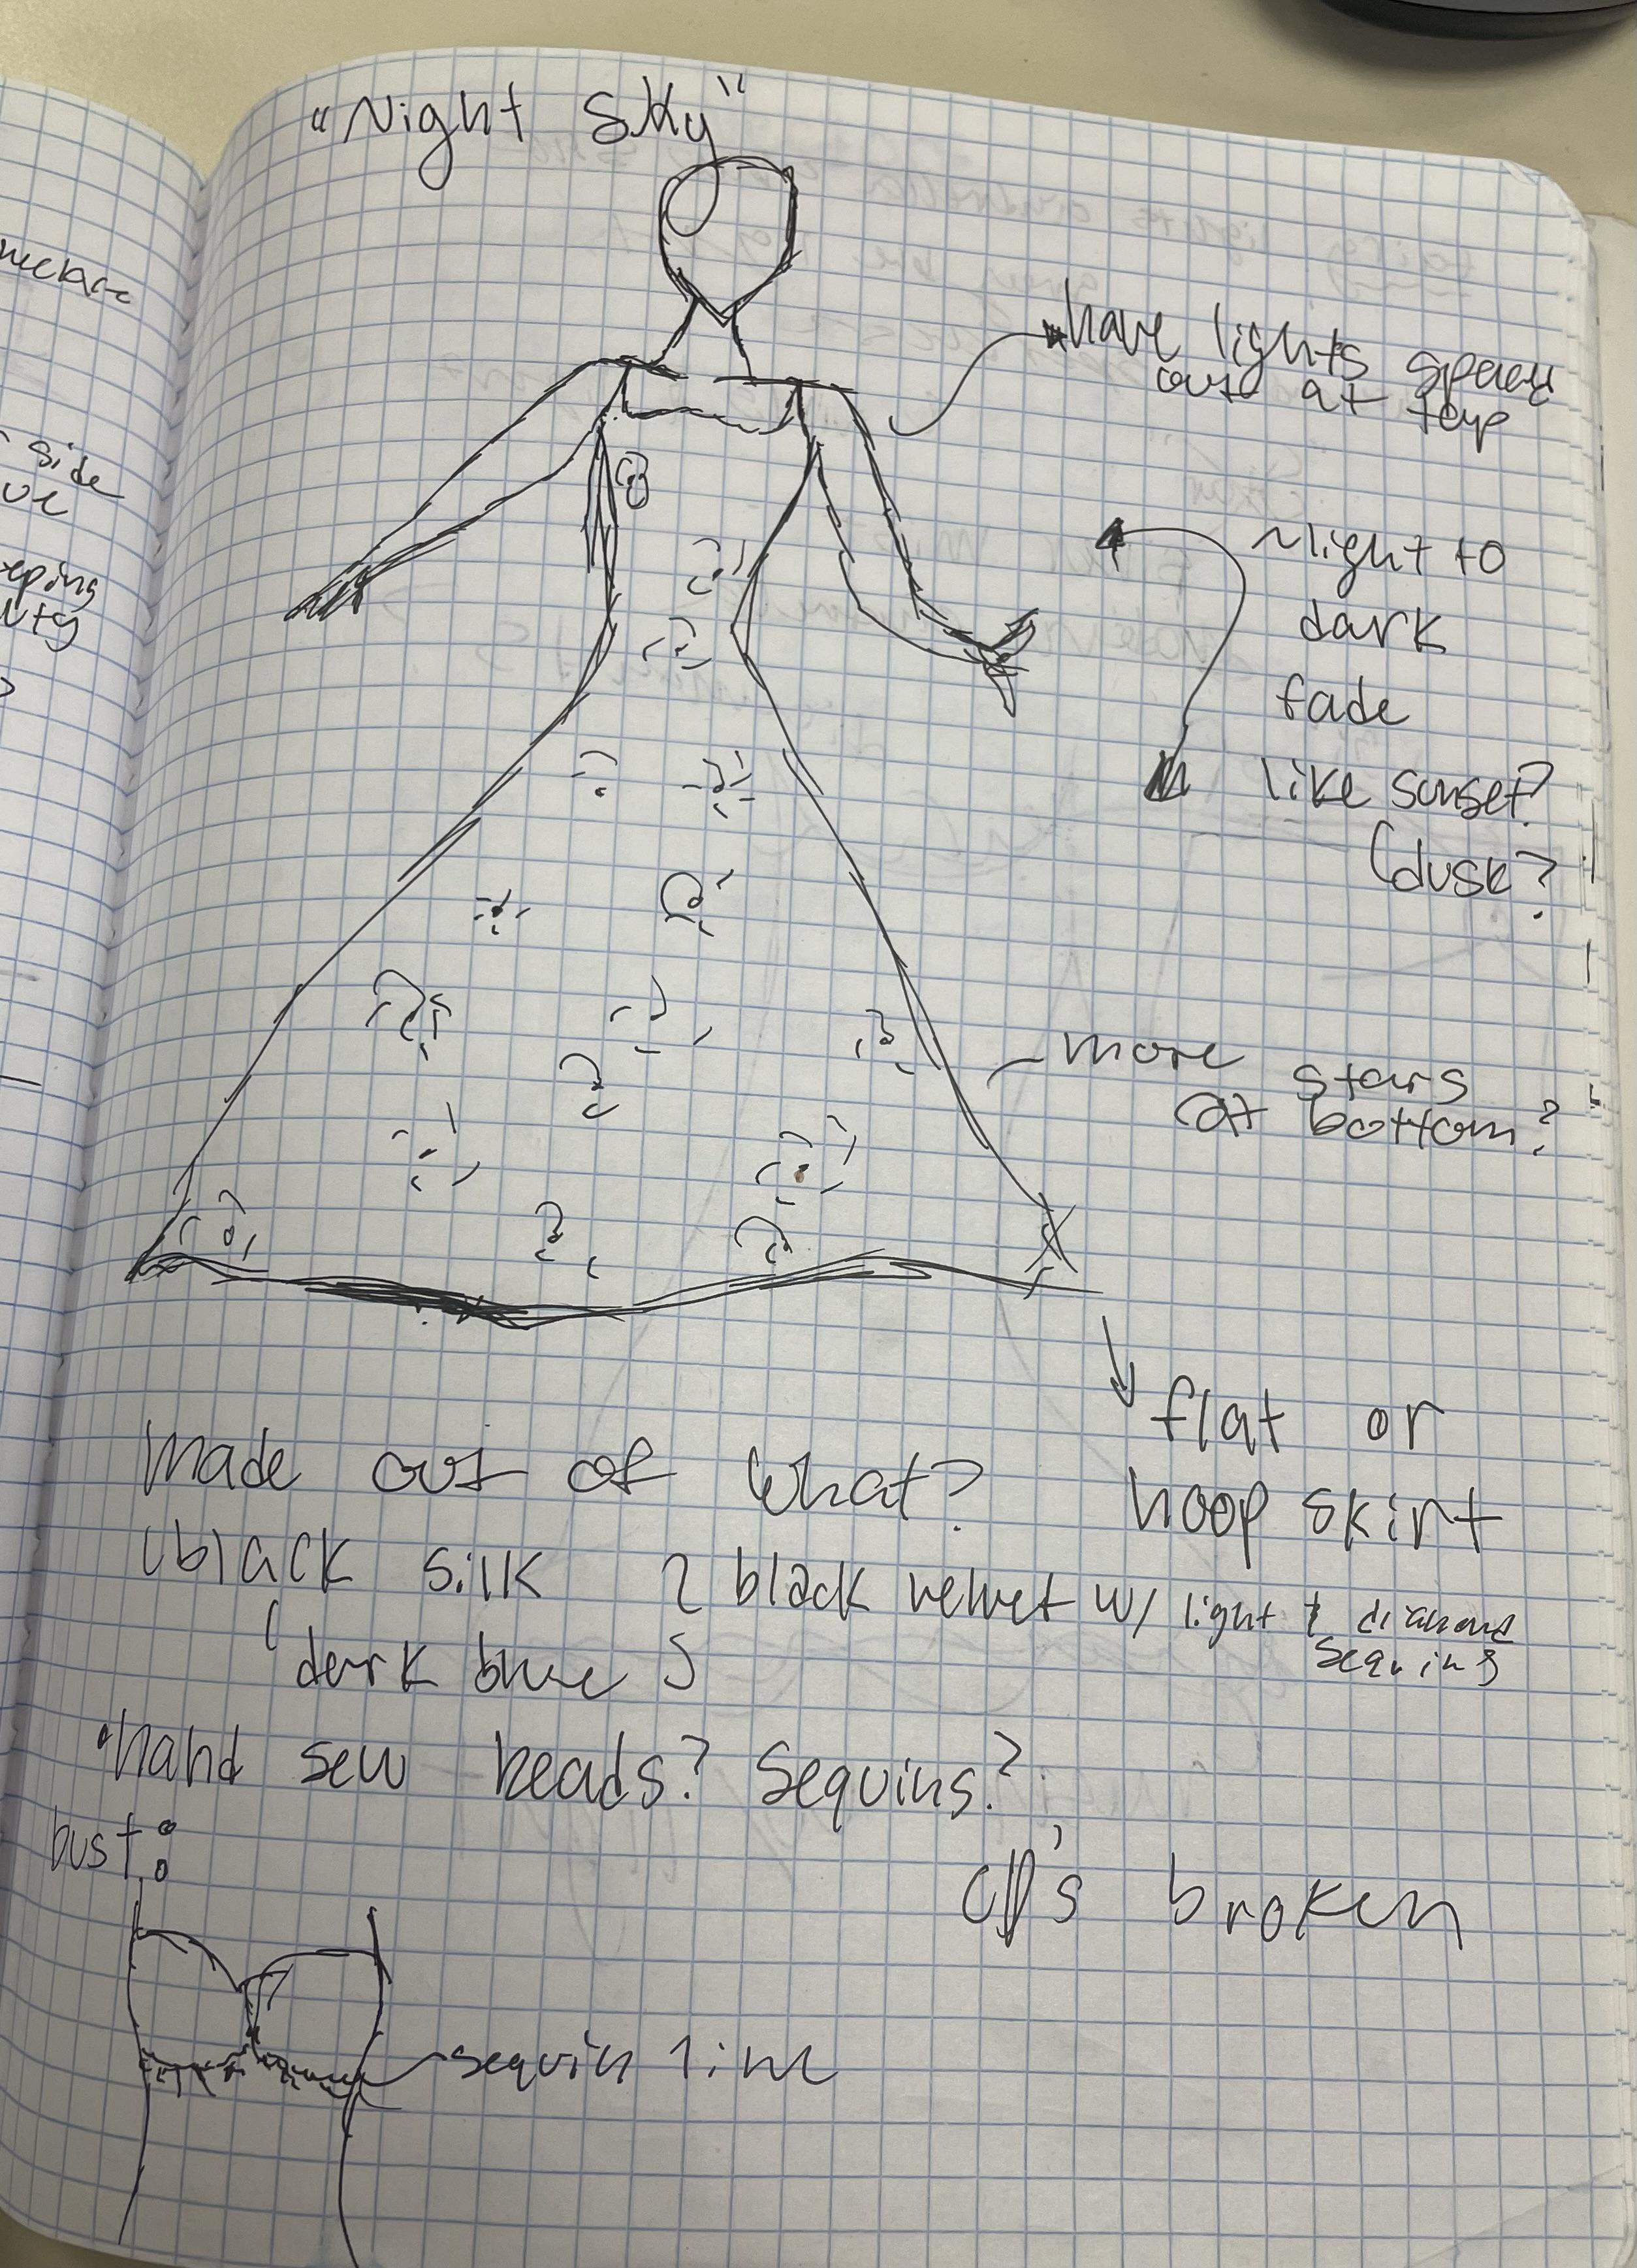 "Night Sky"
have lights spaced
out at top
~light to
dark
fade
like sunset?
(dusk?
side
more stars
at bottom?
flat or
hoop skirt
made out of what?
black silk
black velvet w/ light & diamond
sequins
dark blue
hand sew beads? Sequins?
bust:
CD's broken
sequin line